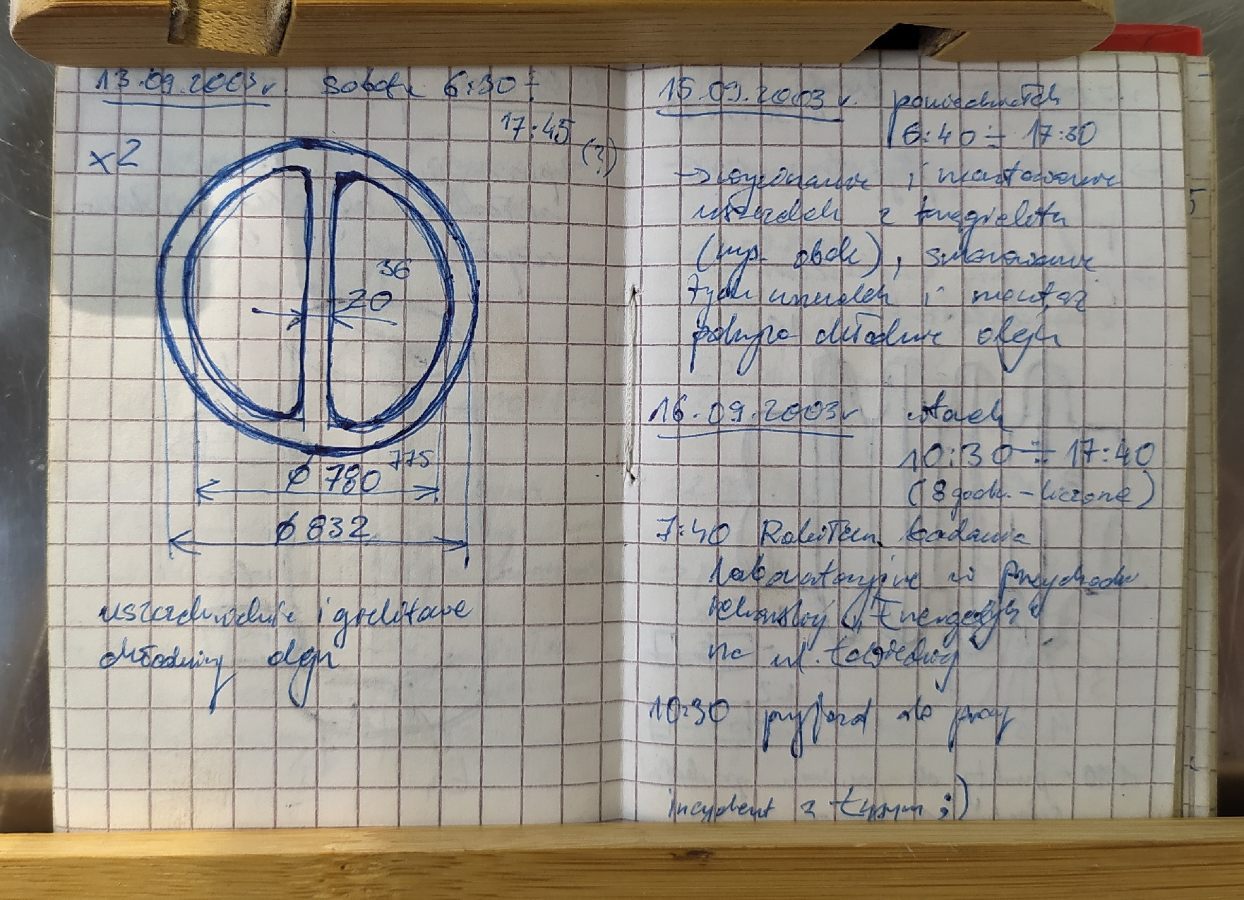 13.09.2003r. sobota 6:30 ÷
17:45 (?)
x2
36
20
775
ø 780
ø 832
uszczelnienie i
chłodnicy oleju
15.09.2003r. poniedziałek
6:40 ÷ 17:30
→ wykonanie i montowanie
uszczelek z tangielitu
(rys. obok), smarowanie
tych uszczelek i montaż
pokryw chłodnic oleju
16.09.2003r wtorek
10:30 ÷ 17:40
(8 godz. - liczone)
7:40 Robiłem badania
laboratoryjne w Przychodni
na ul.
10:30 przyjazd do pracy
incydent z tynym ;)